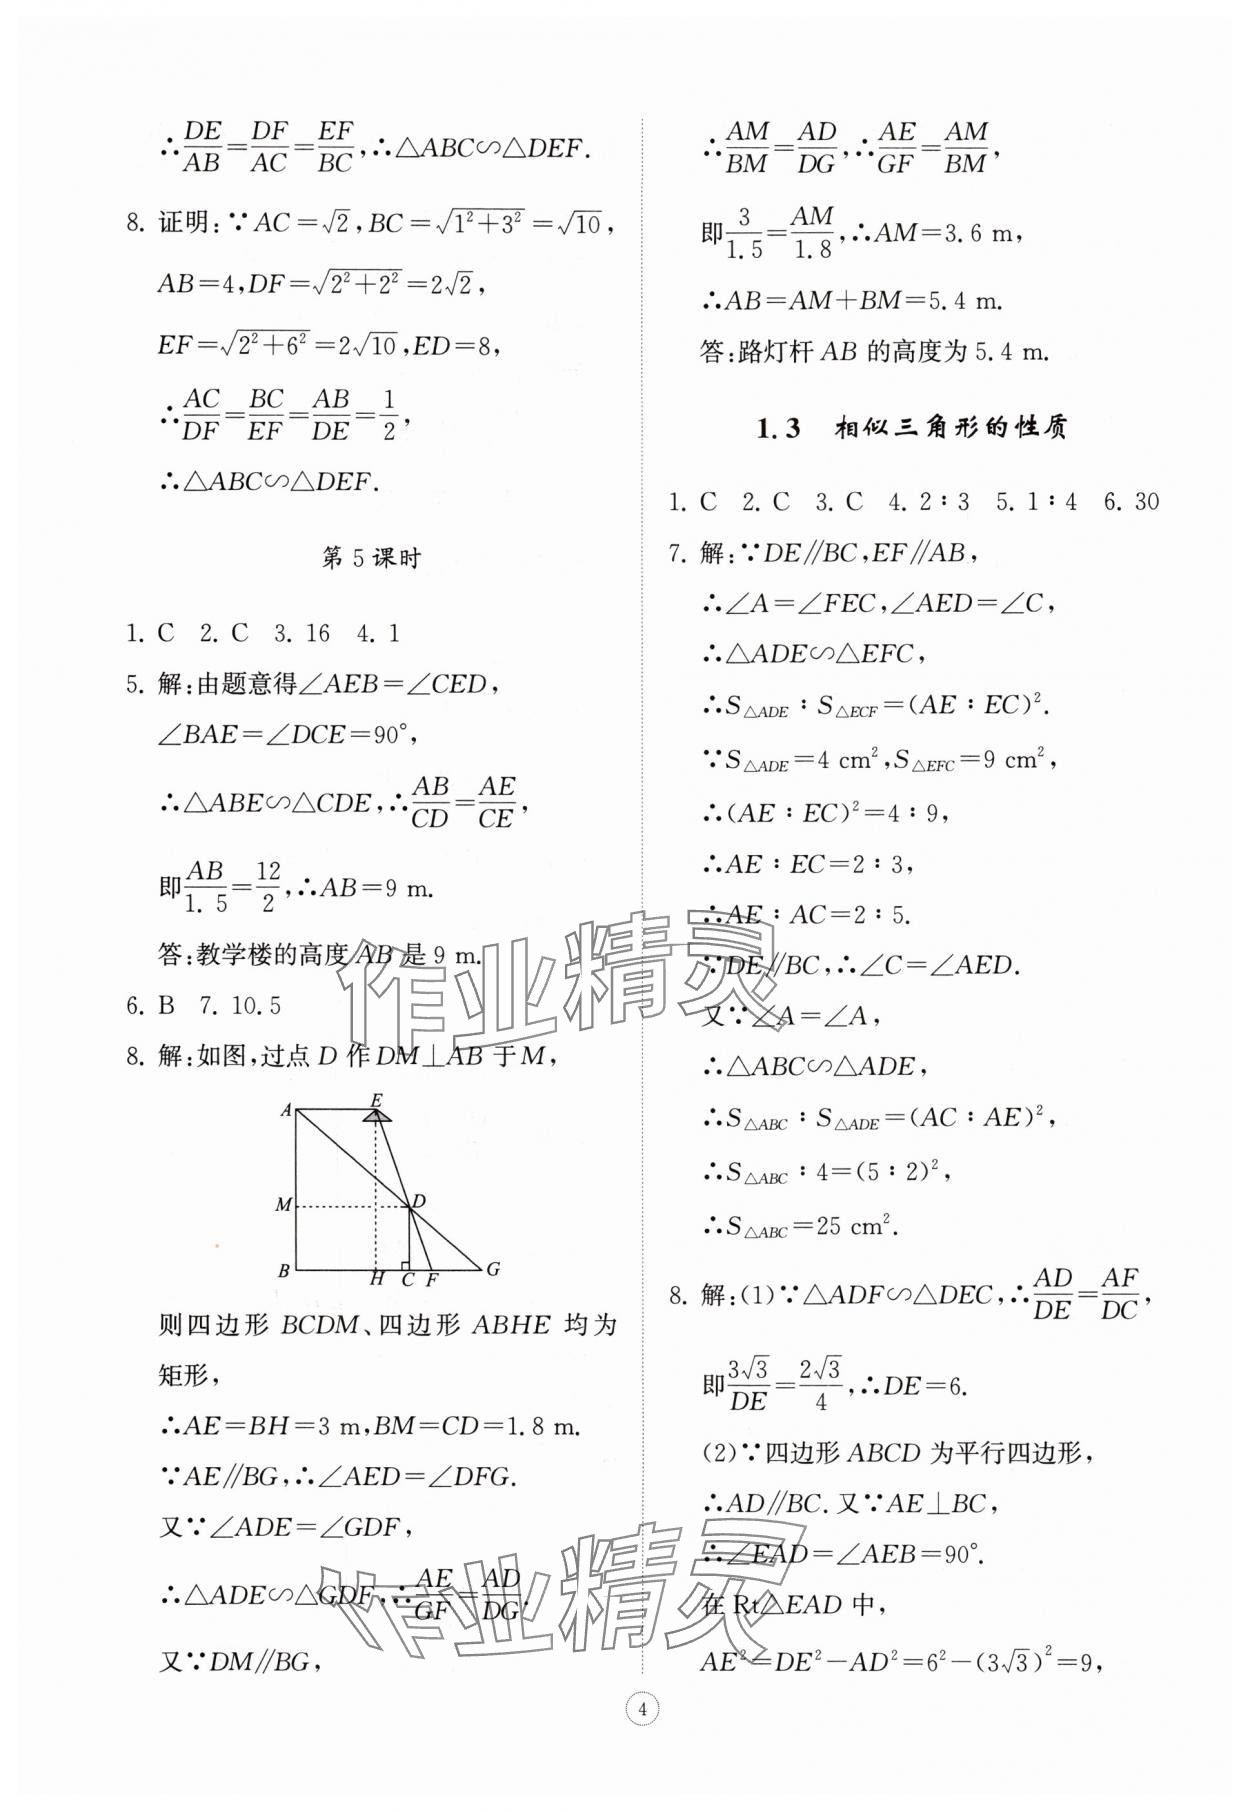 ∴DE/AB=DF/AC=EF/BC,∴△ABC∽△DEF.
8. 证明:∵AC=√2,BC=√(1²+3²)=√10,
AB=4,DF=√(2²+2²)=2√2,
EF=√(2²+6²)=2√10,ED=8,
∴AC/DF=BC/EF=AB/DE=1/2,
∴△ABC∽△DEF.
第5课时
1. C 2. C 3. 16 4. 1
5. 解:由题意得∠AEB=∠CED,
∠BAE=∠DCE=90°,
∴△ABE∽△CDE,∴AB/CD=AE/CE,
即AB/1.5=12/2,∴AB=9 m.
答:教学楼的高度AB是9 m.
6. B 7. 10.5
8. 解:如图,过点D作DM⊥AB于M,
A E
M D
B H C F G
则四边形BCDM、四边形ABHE均为
矩形,
∴AE=BH=3 m,BM=CD=1.8 m.
∵AE∥BG,∴∠AED=∠DFG.
又∵∠ADE=∠GDF,
∴△ADE∽△GDF,∴AE/GF=AD/DG.
又∵DM∥BG,
∴AM/BM=AD/DG,∴AE/GF=AM/BM,
即3/1.5=AM/1.8,∴AM=3.6 m,
∴AB=AM+BM=5.4 m.
答:路灯杆AB的高度为5.4 m.
1.3 相似三角形的性质
1. C 2. C 3. C 4. 2∶3 5. 1∶4 6. 30
7. 解:∵DE∥BC,EF∥AB,
∴∠A=∠FEC,∠AED=∠C,
∴△ADE∽△EFC,
∴S△ADE∶S△ECF=(AE∶EC)².
∵S△ADE=4 cm²,S△EFC=9 cm²,
∴(AE∶EC)²=4∶9,
∴AE∶EC=2∶3,
∴AE∶AC=2∶5.
∵DE∥BC,∴∠C=∠AED.
又∵∠A=∠A,
∴△ABC∽△ADE,
∴S△ABC∶S△ADE=(AC∶AE)²,
∴S△ABC∶4=(5∶2)²,
∴S△ABC=25 cm².
8. 解:(1)∵△ADF∽△DEC,∴AD/DE=AF/DC,
即3√3/DE=2√3/4,∴DE=6.
(2)∵四边形ABCD为平行四边形,
∴AD∥BC.又∵AE⊥BC,
∴∠EAD=∠AEB=90°.
在Rt△EAD中,
AE²=DE²-AD²=6²-(3√3)²=9,
4
作业精灵
作业精灵